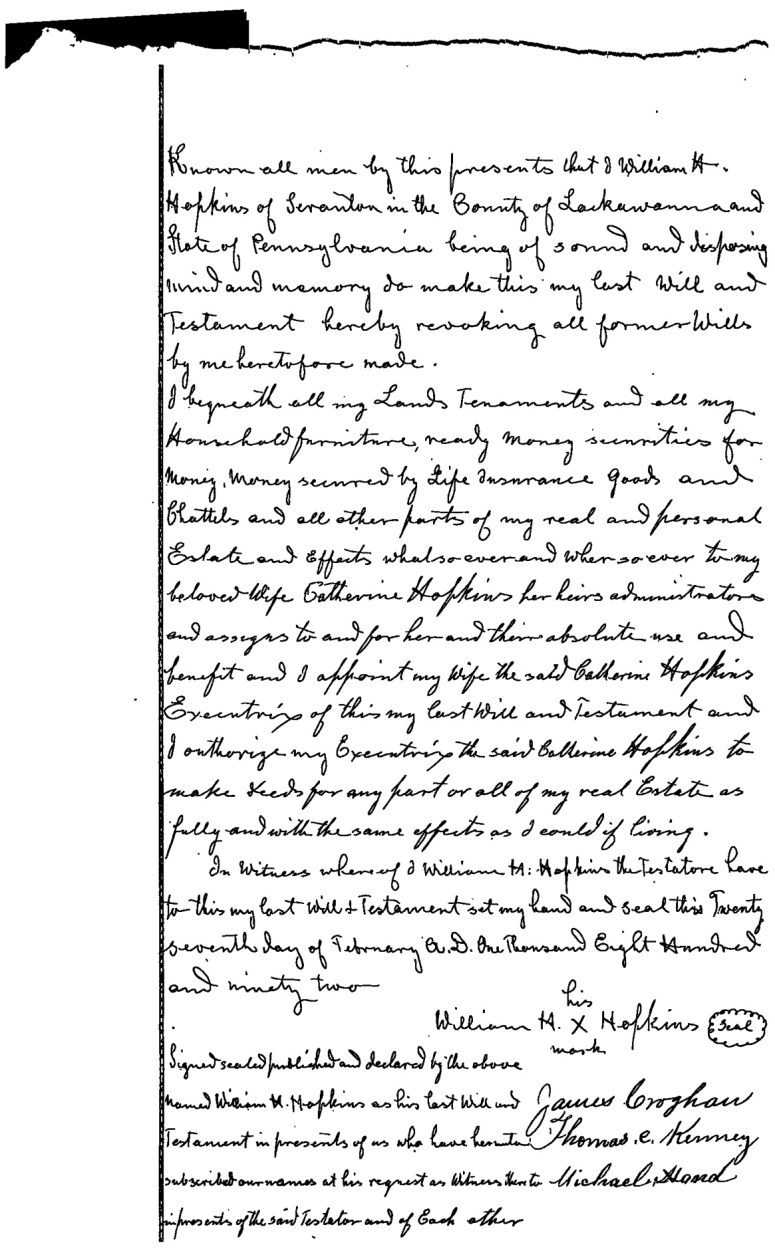 Known all men by this presents that I William H.
Hopkins of Scranton in the County of Lackawanna and
State of Pennsylvania being of sound and disposing
mind and memory do make this my last Will and
Testament hereby revoking all former Wills
by me heretofore made.
I bequeath all my Lands Tenaments and all my
Household furniture, ready money securities for
Money, Money secured by Life Insurance Goods and
Chattels and all other parts of my real and personal
Estate and Effects whatsoever and wher so ever to my
beloved Wife Catherine Hopkins her heirs administrators
and assigns to and for her and their absolute use and
benefit and I appoint my Wife the said Catherine Hopkins
Executrix of this my last Will and Testament and
I authorize my Executrix the said Catherine Hopkins to
make deeds for any part or all of my real Estate as
fully and with the same effects as I could if living.
In Witness where of I William H. Hopkins the Testatore have
to this my last Will & Testament set my hand and seal this Twenty
seventh day of February A.D. One Thousand Eight Hundred
and ninety two
his
William H. X Hopkins Seal
mark
Signed sealed published and declared by the above
named William H. Hopkins as his last Will and James Croghan
Testament in presents of us who have hereunto Thomas. C. Kenney
subscribed our names at his request as Witness thereto Michael Hand
in presents of the said Testator and of Each other